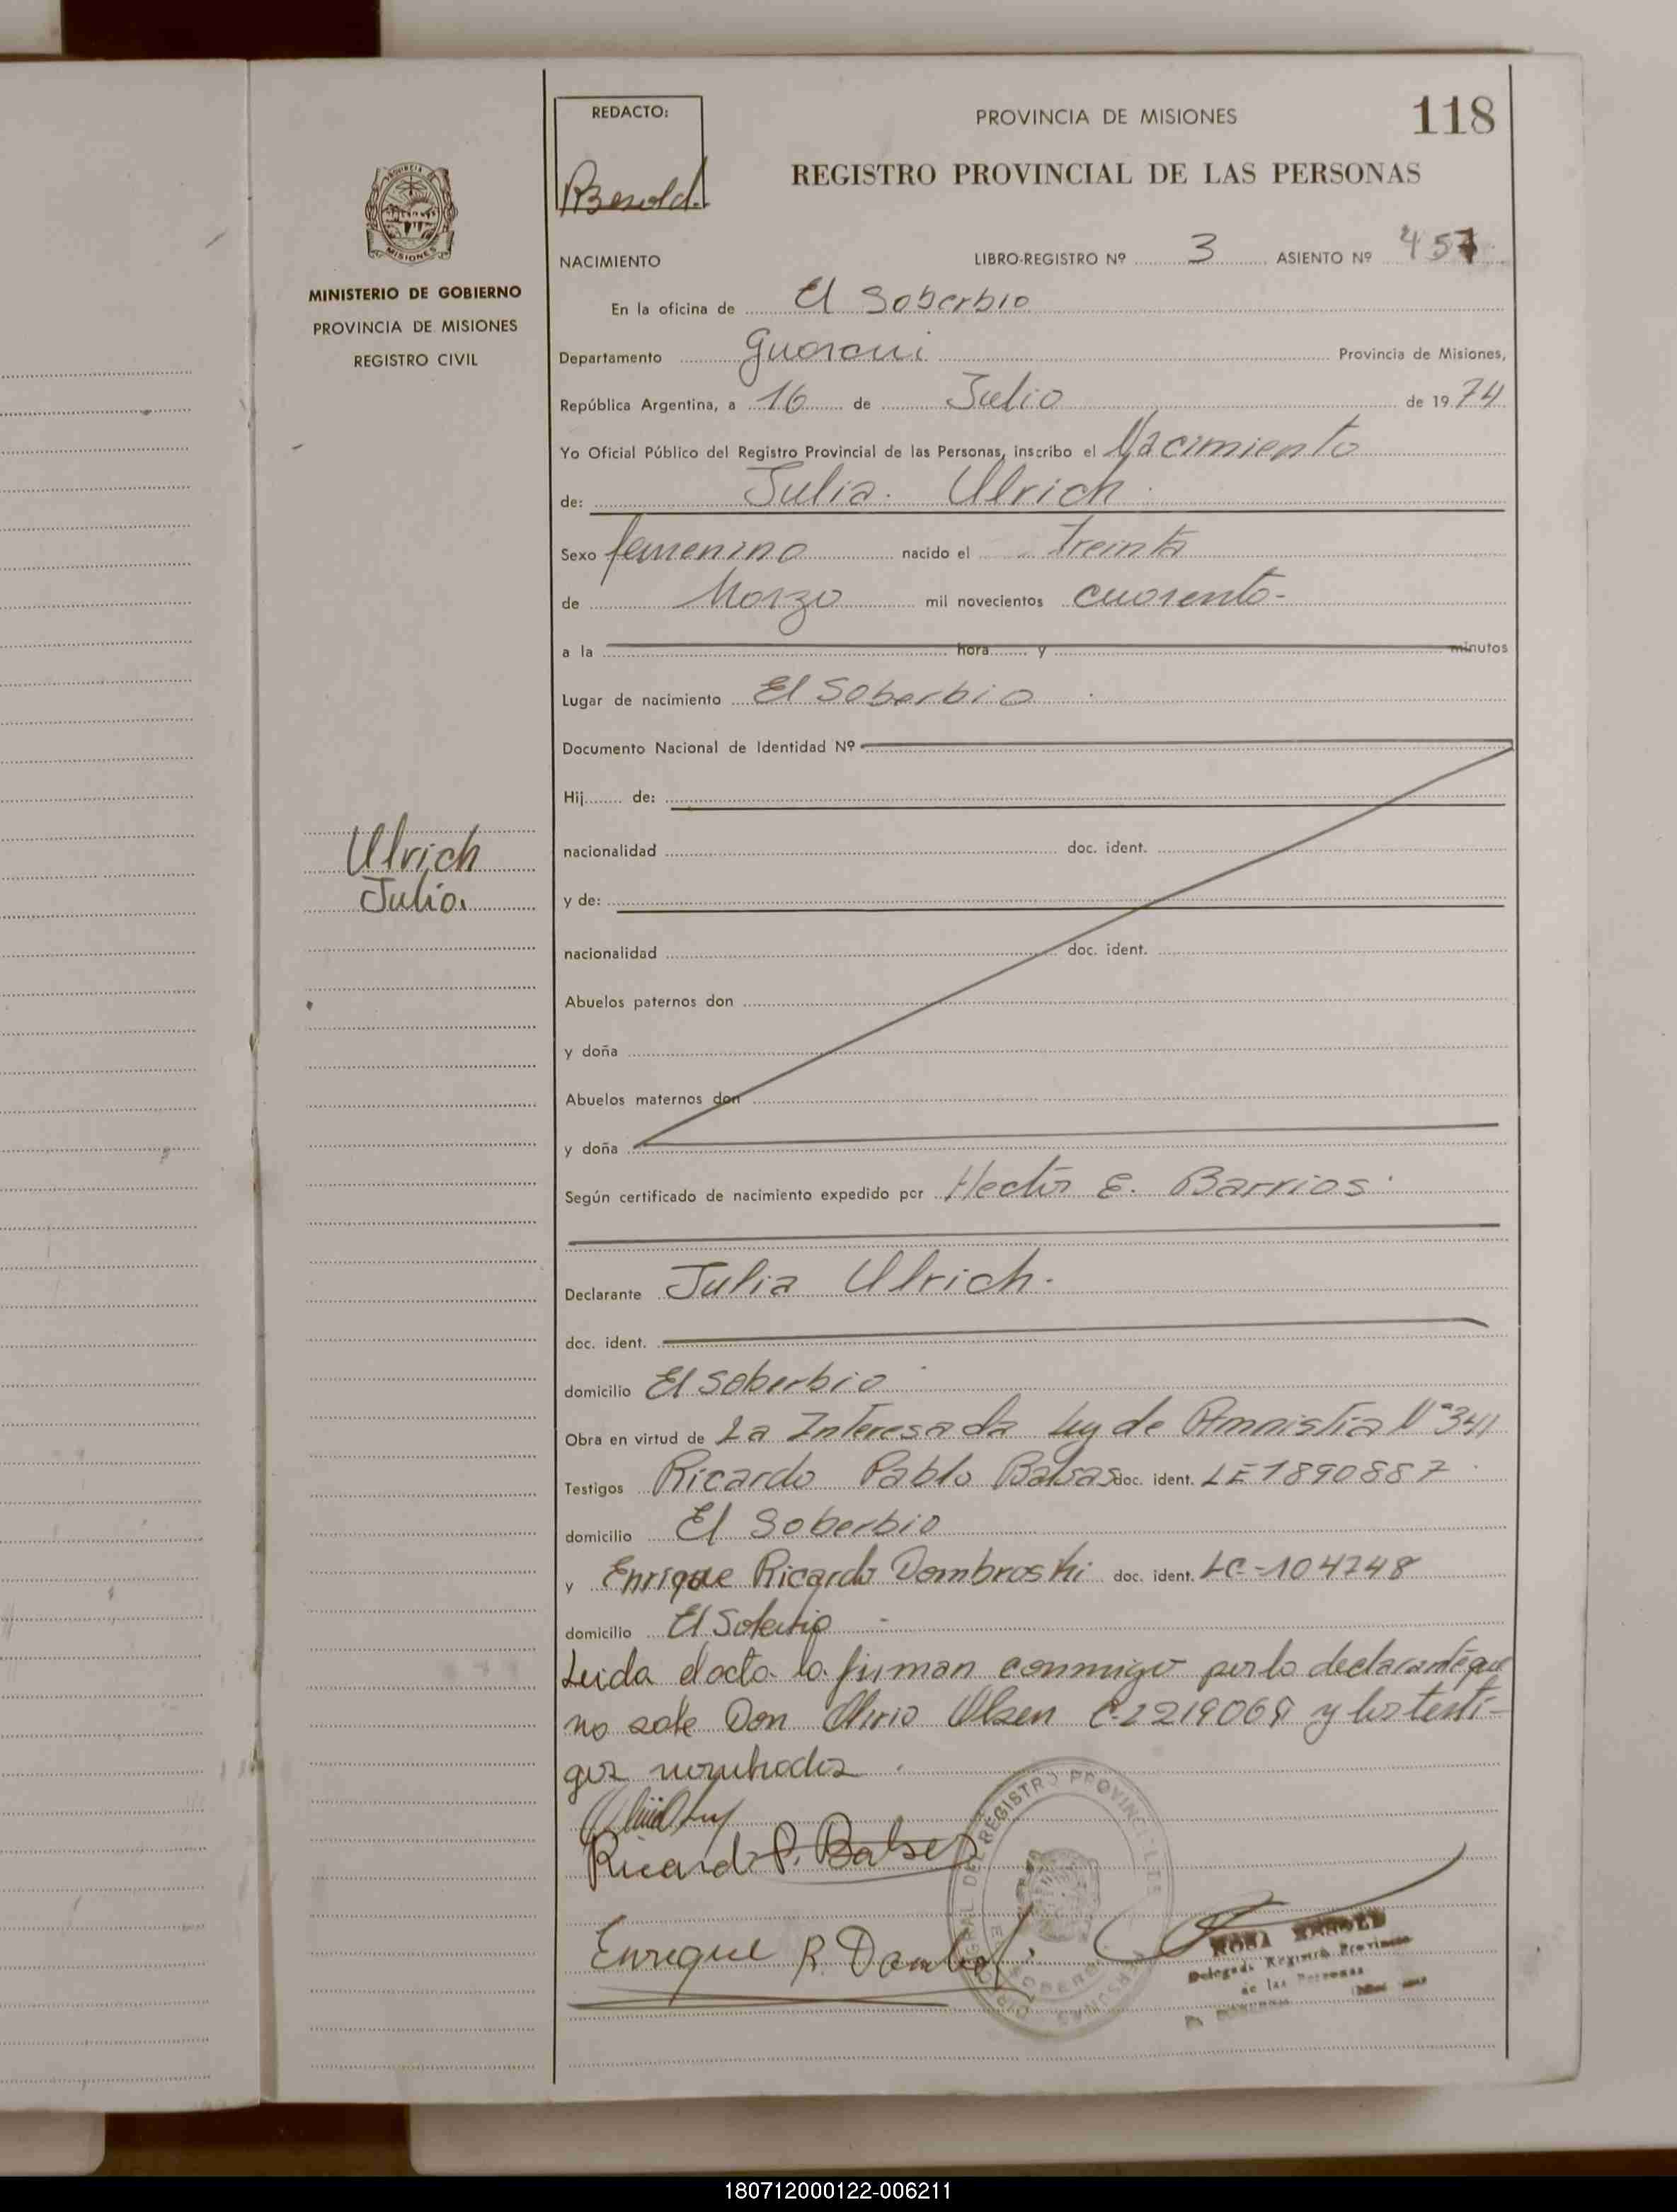 REDACTO:
PROVINCIA DE MISIONES
118
REGISTRO PROVINCIAL DE LAS PERSONAS
MISIONES
MINISTERIO DE GOBIERNO
PROVINCIA DE MISIONES
REGISTRO CIVIL
NACIMIENTO LIBRO-REGISTRO Nº 3 ASIENTO Nº 457
En la oficina de El Soberbio
Departamento Guarani Provincia de Misiones,
República Argentina, a 16 de Julio de 1974
Yo Oficial Público del Registro Provincial de las Personas, inscribo el Nacimiento
de: Julia Ulrich
Sexo femenino nacido el treinta
de Marzo mil novecientos cuarenta-
a la hora y minutos
Lugar de nacimiento El Soberbio
Documento Nacional de Identidad Nº
Hij de:
Ulrich
Julia.
nacionalidad doc. ident.
y de:
nacionalidad doc. ident.
Abuelos paternos don
y doña
Abuelos maternos don
y doña
Según certificado de nacimiento expedido por Hector E. Barrios
Declarante Julia Ulrich.
doc. ident.
domicilio El Soberbio
Obra en virtud de La Interesada Ley de Amnistia Nº 341
Testigos Ricardo Pablo doc. ident. LE 1890887
domicilio El Soberbio
y Enrique Ricardo Dombroski doc. ident. LC-104748
domicilio El Soberbio
Leida el acta la firman conmigo por la declarante que
no sabe Don Olirio Olsen C. 2219069 y los testi-
gos nombrados.
Ricardo P.
Enrique R.
REGISTRO
Delegada Registro Provincial
de las Personas
180712000122-006211